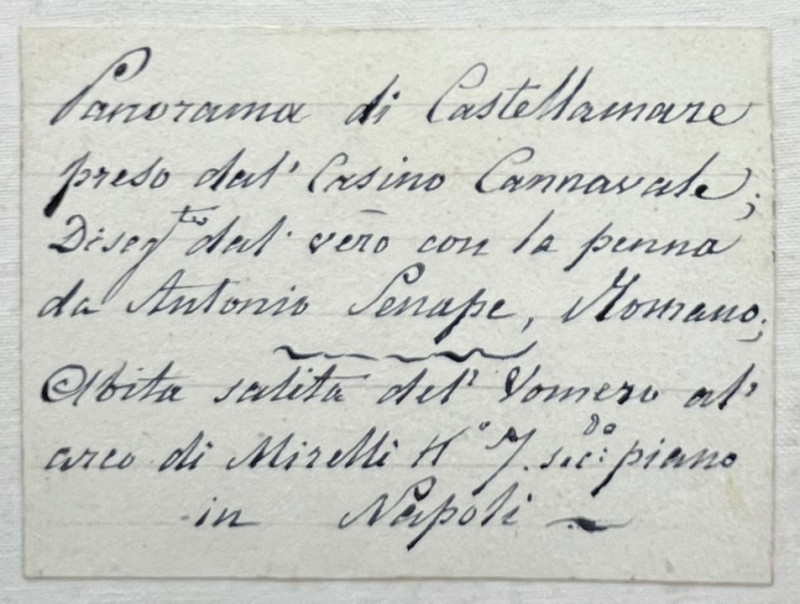 Panorama di Castellamare
preso dal' Casino Cannavale;
Diseg.to dal' vero con la penna
da Antonio Senape, Romano;
Abita salita del' Vomero al'
arco di Mirelli N.° 7. sec:do piano
in Napoli